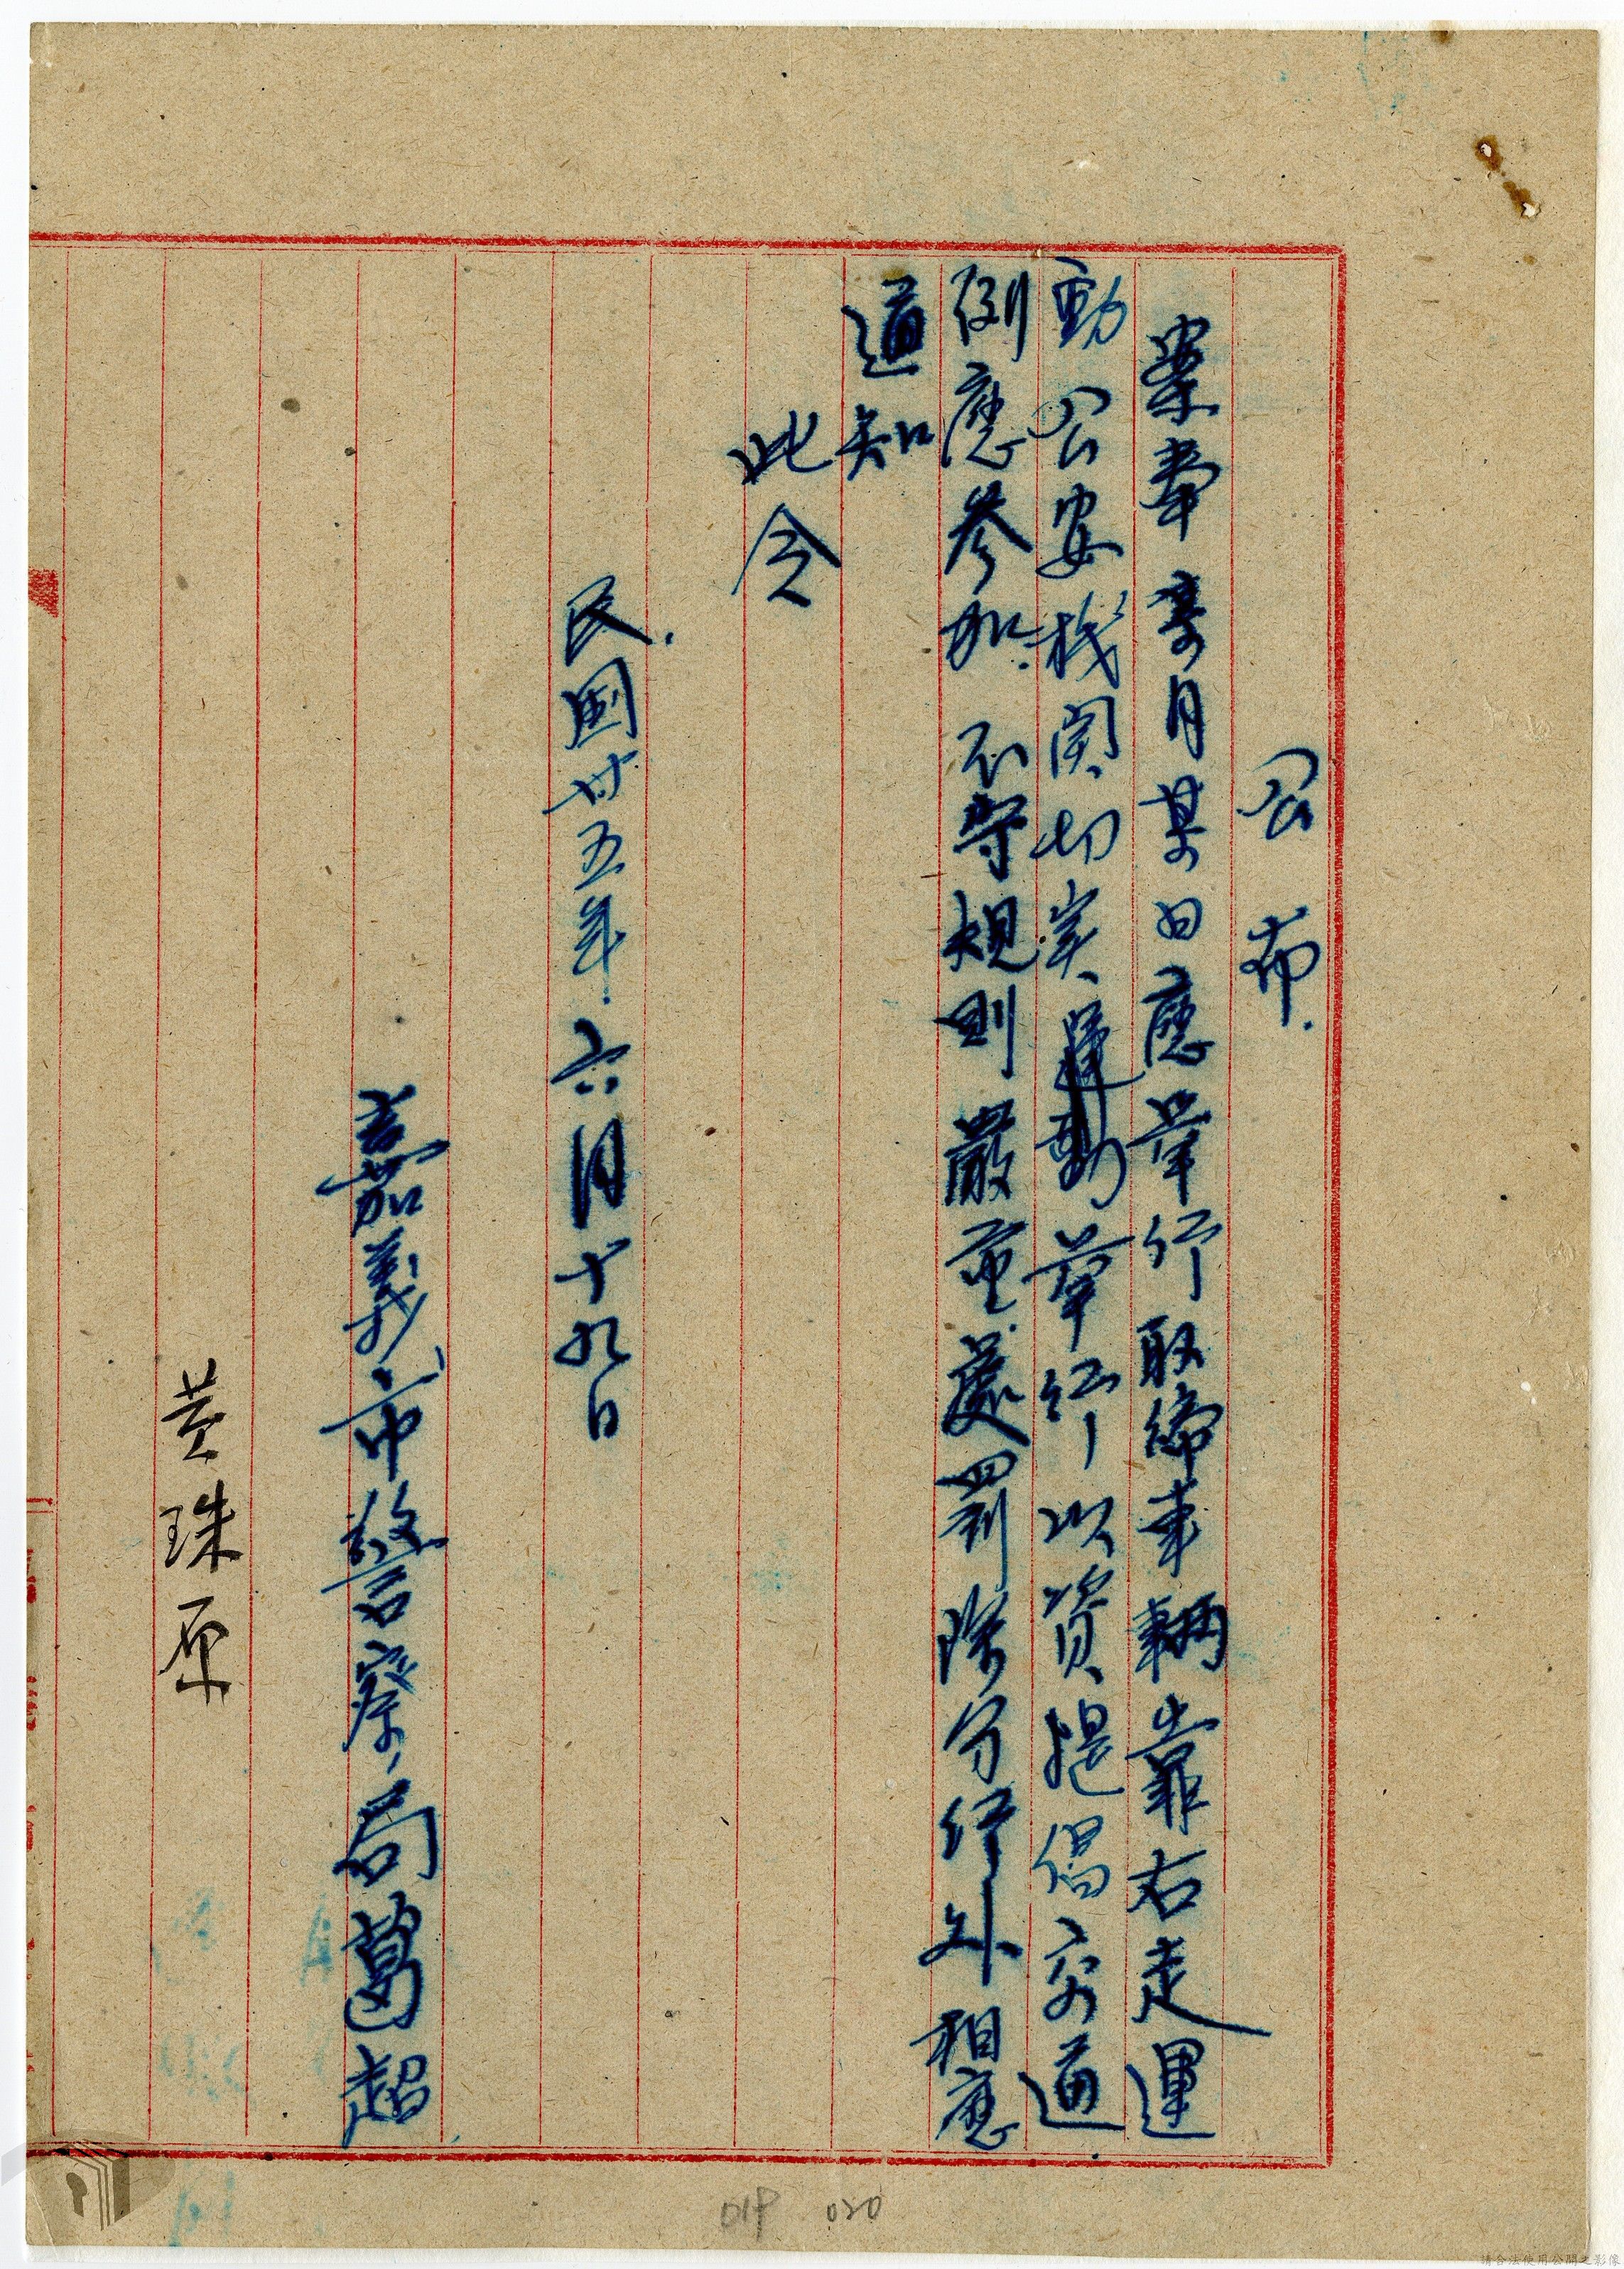 公布
案奉 某月某日應举行取締車輛靠右走運
動公安機関切实運動举行以資提倡交通
例應參加 不守規則嚴重處罰除分行外相應
通知
此令
民國卅五年六月十九日
嘉義市警察局葛超
黃珠原
019 020
請合法使用公開之影像